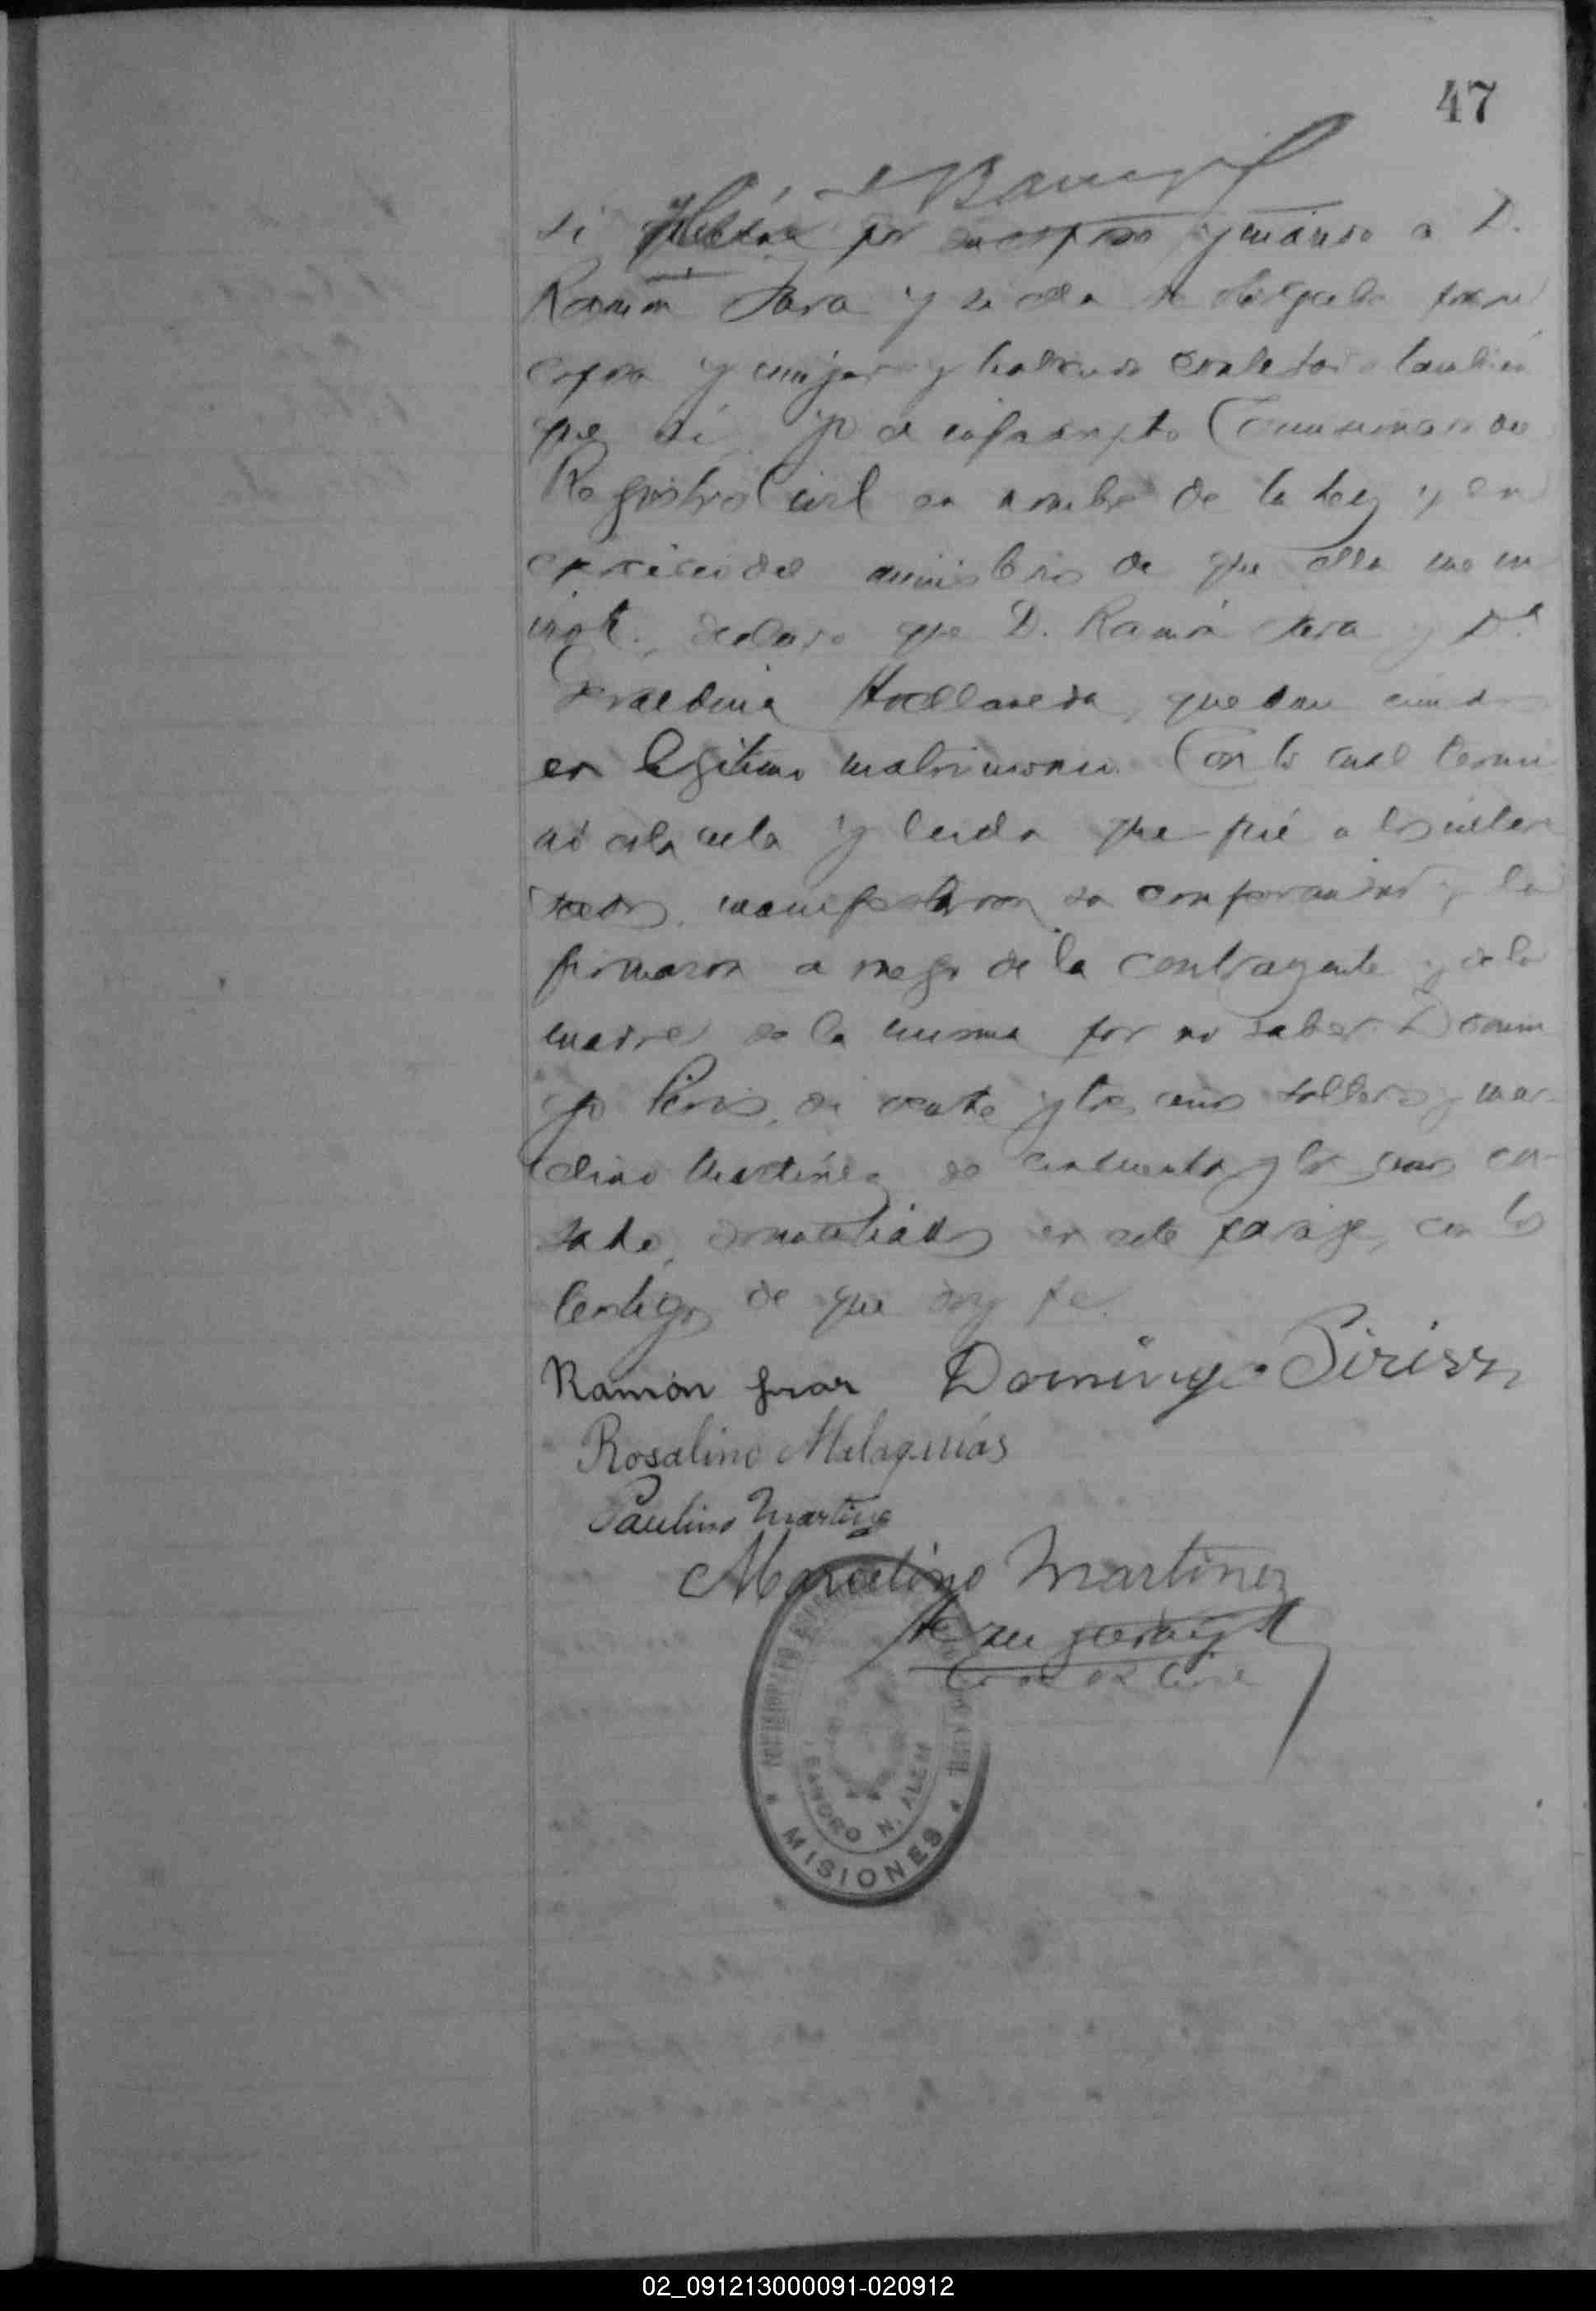 47
si por esposo y marido a D.
Ramón Jara y si ella se otorgaba por su
esposa y mujer y habiendo contestado también
que sí, yo el infrascripto Comisario de
Registro Civil en nombre de la ley y en
ejercicio del ministerio de que ella me in
viste, declaro que D. Ramón Jara y Da
quedan unidos
en legítimo matrimonio. Con lo cual termi
nó esta acta y leída que fué a los intere
sados, manifestaron su conformidad y la
firmaron a ruego de la contrayente y de la
madre de la misma por no saber Domin
go Piris, de veinte y tres años soltero y Mar
celino Martínez de cincuenta y años ca-
sado, domiciliados en este paraje, con los
testigos de que doy fe.
Ramón Domingo Piriss
Rosalino Malaquías
Paulino Martine
Marcelino Martinez
LEANDRO N. ALEM
MISIONES
02_091213000091-020912